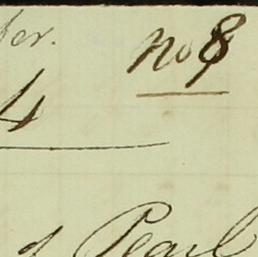 no 8
4
of Pearl